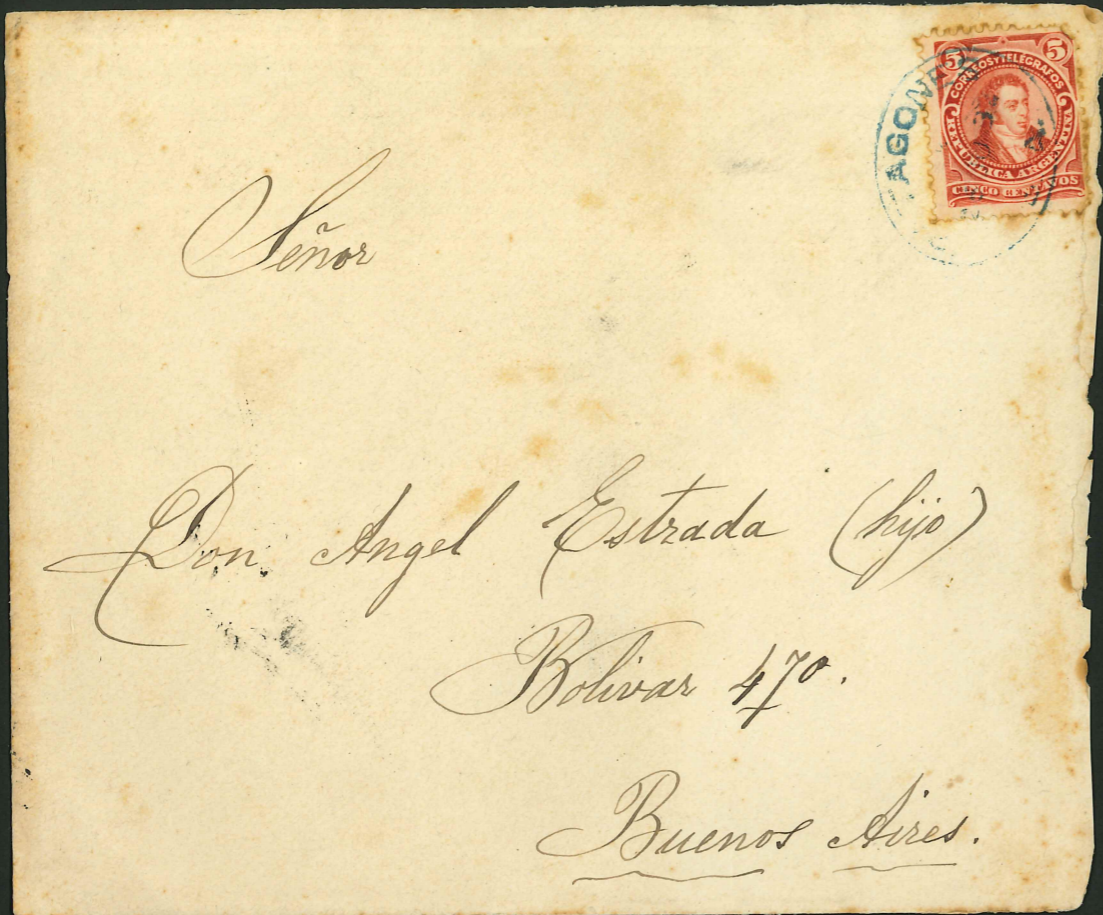 5 5
CORREOS Y TELEGRAFOS
REPUBLICA ARGENTINA
CINCO CENTAVOS
Señor
Don Angel Estrada (hijo)
Bolivar 470.
Buenos Aires.